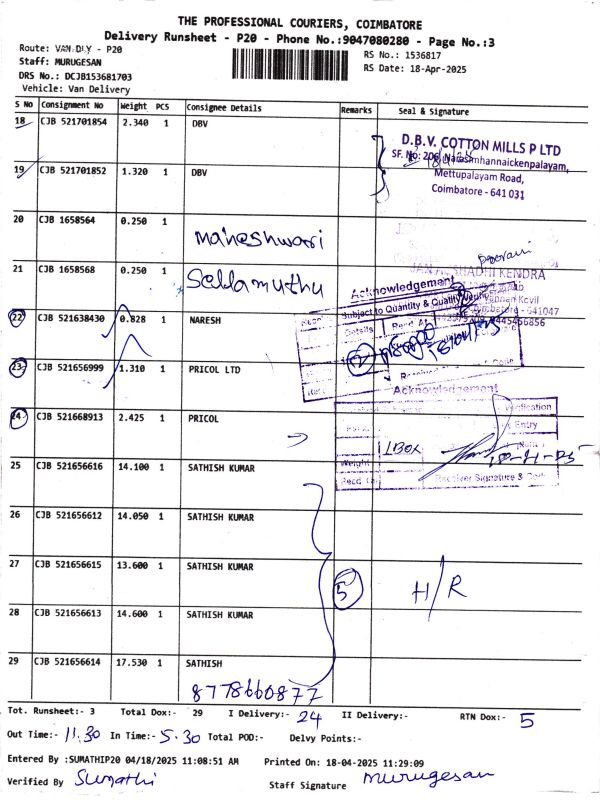 THE PROFESSIONAL COURIERS, COIMBATORE
Delivery Runsheet - P20 - Phone No.:9047080280 - Page No.:3
Route: VAN DLY - P20
RS No.: 1536817
Staff: MURUGESAN
RS Date: 18-Apr-2025
DRS No.: DCJB153681703
Vehicle: Van Delivery
S No Consignment No Weight PCS Consignee Details Remarks Seal & Signature
18 CJB 521701854 2.340 1 DBV
D.B.V. COTTON MILLS P LTD
SF. No: 206, Narasimhannaickenpalayam,
19 CJB 521701852 1.320 1 DBV
Mettupalayam Road,
Coimbatore - 641 031
20 CJB 1658564 0.250 1
Maheshwari
21 CJB 1658568 0.250 1
Sellamuthu
JAN AUSHADHI KENDRA
Acknowledgement
Subject to Quantity & Quality
22 CJB 521638430 0.828 1 NARESH
23 CJB 521656999 1.310 1 PRICOL LTD
Acknowledgement
Verification
24 CJB 521668913 2.425 1 PRICOL
Entry
1 BOX
Weight
Receiver Signature &
25 CJB 521656616 14.100 1 SATHISH KUMAR
26 CJB 521656612 14.050 1 SATHISH KUMAR
27 CJB 521656615 13.600 1 SATHISH KUMAR
5 H/R
28 CJB 521656613 14.600 1 SATHISH KUMAR
29 CJB 521656614 17.530 1 SATHISH
8778660877
Tot. Runsheet:- 3 Total Dox:- 29 I Delivery:- 24 II Delivery:- RTN Dox:- 5
Out Time:- 11.30 In Time:- 5.30 Total POD:- Delvy Points:-
Entered By :SUMATHIP20 04/18/2025 11:08:51 AM Printed On: 18-04-2025 11:29:09
Verified By Sumathi Staff Signature Murugesan